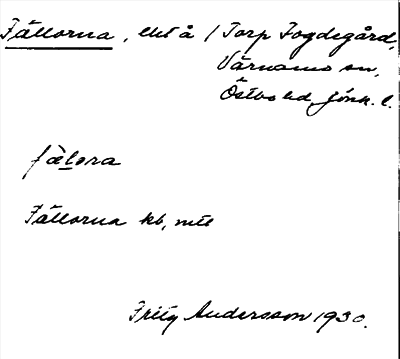 Fällorna, ekt å / Torp Fogdegård,
Värnamo sn,
Östbo hd, Jönk. l.
fàlora
Fällorna kb, mtl
Fritz Andersson 1930.